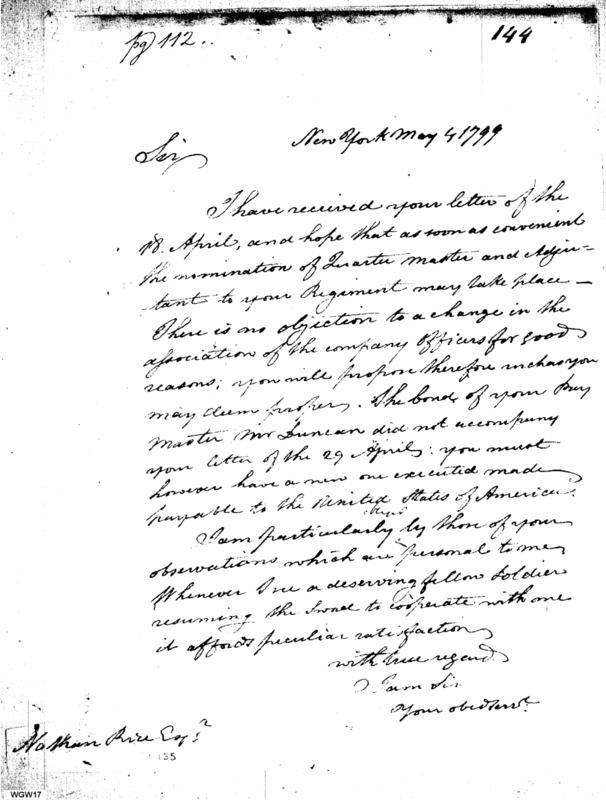 pg) 112..
144
New York May 4 1799
Sir
I have received your letter of the
18. April, and hope that as soon as convenient
the nomination of Quarter Master and Adju=
tant to your Regiment may take place —
There is no objection to a change in the
association of the company officers for good
reasons; you will propose therefore such as you
may deem proper. The bond of your Pay
Master Mr Duncan did not accompany
your letter of the 29 April: you must
however have a new one executed made
payable to the United States of America.
I am particularly by those of your
observations which are personal to me,
Whenever I see a deserving fellow soldier
resuming the Sword to cooperate with me
it affords peculiar satisfaction
with true regard
I am Sir
Your obed servt.
Nathan Rice Esqr
135
WGW17